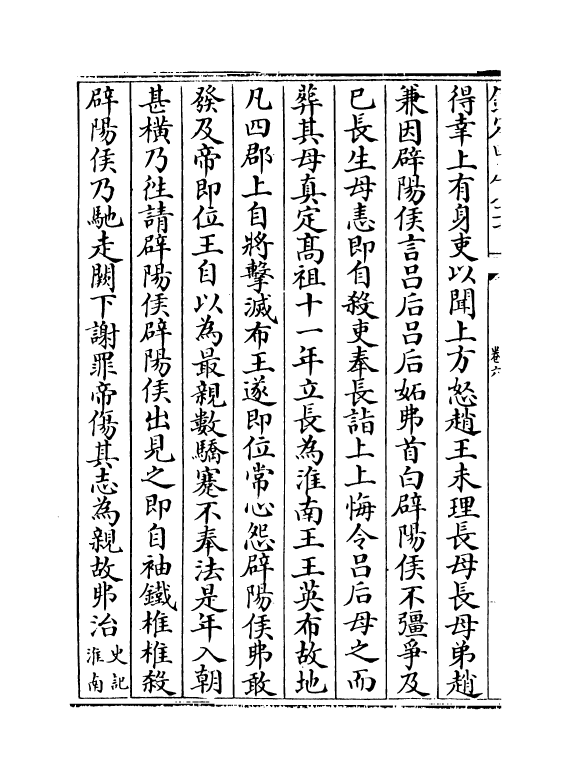 得幸上有身吏以聞上方怒趙王未理長母長母弟趙
兼因辟陽侯言吕后吕后妬弗首白辟陽侯不彊爭及
已長生母恚即自殺吏奉長詣上上悔令吕后母之而
葬其母真定髙祖十一年立長為淮南王王英布故地
凡四郡上自將擊滅布王遂即位常心怨辟陽侯弗敢
發及帝即位王自以為最親數驕蹇不奉法是年入朝
甚橫乃徃請辟陽侯辟陽侯出見之即自袖鐵椎椎殺
辟陽侯乃馳走闕下謝罪帝傷其志為親故弗治史記
淮南
卷六